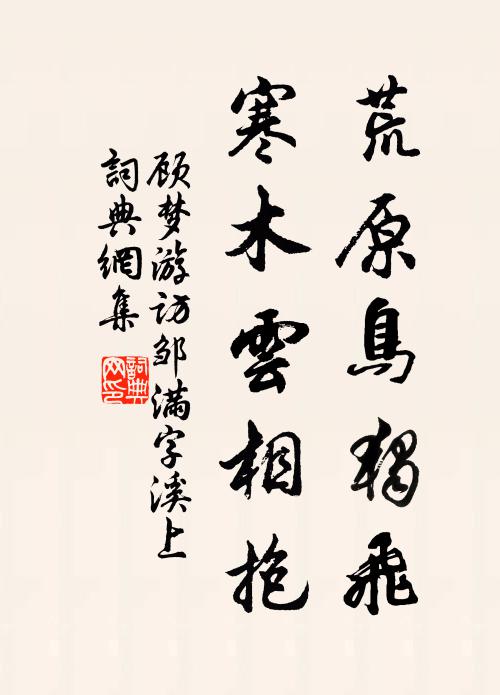 荒原鳥獨飛
寒木雲相抱
顾梦游访邹满字溪上
詞典網集
詞典網印